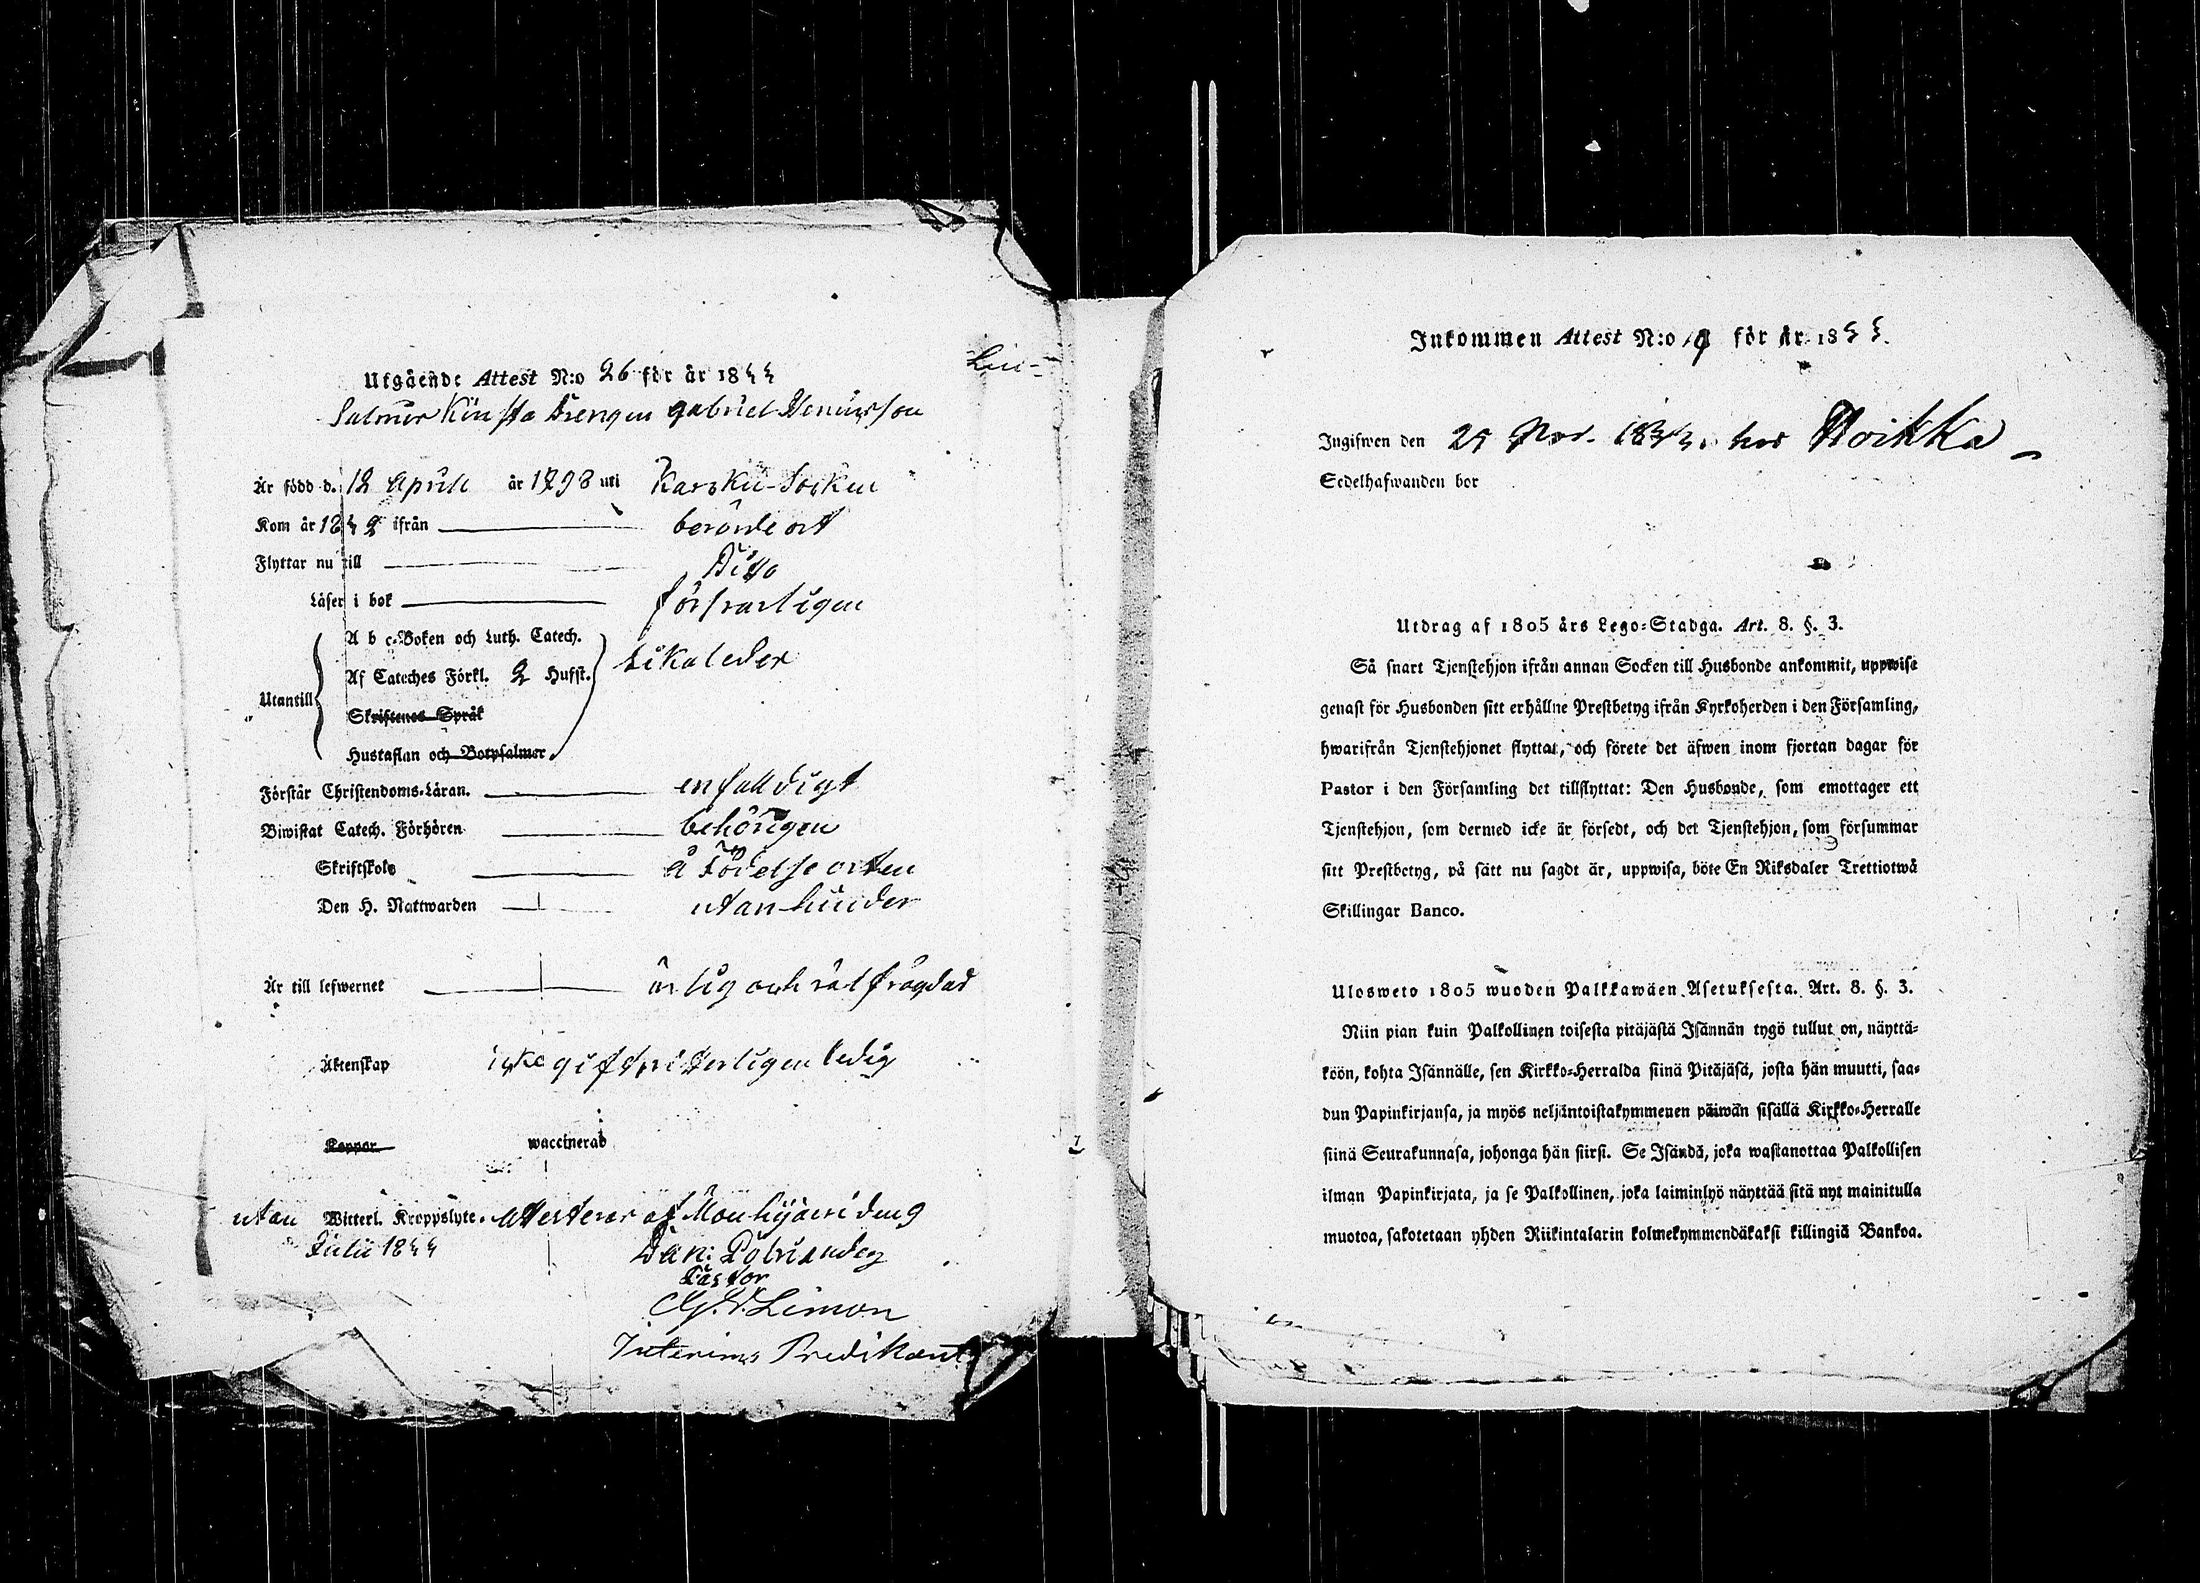 Utgående Attest N:o 26 för år 1844
Drengen Gabriel Henricsson
Är född d. 12 April år 1798 uti Karvku Socken
Kom år 1842 ifrån berörde ort
Flyttar nu till Dito
Läser i bok försvarligen
Utantill
A b c-Boken och Luth. Catech.
Af Cateches Förkl. 2 Hufst.
Skriftenes Språk
Hustaflan och Botpsalmer.
likaledes
Förstår Christendoms-Läran. enfalldigt
Biwistat Catech. Förhören behörigen
Skriftskola å Födelse orten
Den H. Nattwarden utan hinder
Är till lefwernet ärlig och väl frägdad
Äktenskap icke gift ledig
Koppor waccinerad
utan Witterl. Kroppslyte. Attesterar af Mouhijärvi den 9
Julii 1844
Dan:
Pastor
G. V. Limon
Interims Predikant
Inkommen Attest N:o 19 för år 1844.
Ingifwen den 25 Nov. 1844. hos Noikka
Sedelhafwanden bor
Utdrag af 1805 års Lego-Stadga. Art. 8. §. 3.
Så snart Tjenstehjon ifrån annan Socken till Husbonde ankommit, uppwise
genast för Husbonden sitt erhållne Prestbetyg ifrån Kyrkoherden i den Församling,
hwarifrån Tjenstehjonet flyttat, och förete det äfwen inom fjortan dagar för
Pastor i den Församling det tillflyttat: Den Husbonde, som emottager ett
Tjenstehjon, som dermed icke är försedt, och det Tjenstehjon, som försummar
sitt Prestbetyg, på sätt nu sagdt är, uppwisa, böte En Riksdaler Trettiotwå
Skillingar Banco.
Ulosweto 1805 wuoden Palkkawäen Asetuksesta. Art. 8. §. 3.
Niin pian kuin Palkollinen toisesta pitäjästä Isännän tygö tullut on, näyttä-
köön, kohta Isännälle, sen Kirkko-Herralda siinä Pitäjäsä, josta hän muutti, saa-
dun Papinkirjansa, ja myös neljäntoistakymmenen päiwän sisällä Kirkko-Herralle
siinä Seurakunnasa, johonga hän siirsi. Se Isändä, joka wastanottaa Palkollisen
ilman Papinkirjata, ja se Palkollinen, joka laiminlyö näyttää sitä nyt mainitulla
muotoa, sakotetaan yhden Riikintalarin kolmekymmendäkaksi killingiä Bankoa.